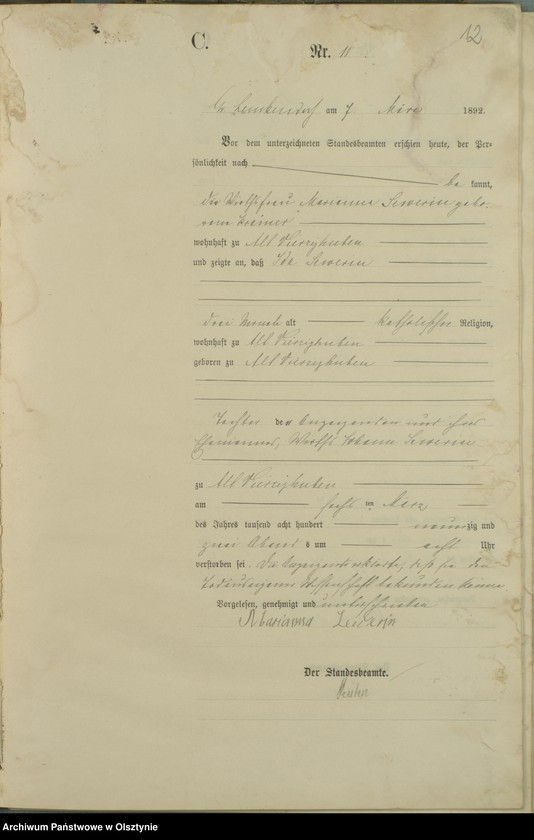 12
C.
Nr. 11
am 7. März 1892.
Vor dem unterzeichneten Standesbeamten erschien heute, der Per-
sönlichkeit nach
be kannt,
die Wirthsfrau Marianna Sewerin gebo-
rene
wohnhaft zu Alt Vierzighuben
und zeigte an, daß Ida Sewerin
drei Monate alt katholischer Religion,
wohnhaft zu Alt Vierzighuben
geboren zu Alt Vierzighuben
Tochter der Anzeigenden und ihres
Ehemannes, Wirths Johann Sewerin
zu Alt Vierzighuben
am sechsten März
des Jahres tausend acht hundert neunzig und
zwei Abends um acht Uhr
verstorben sei. Die Anzeigende erklärte, daß sie den
Todes aus eigener Wissenschaft bekunden könne
Vorgelesen, genehmigt und unterschrieben
Marianna Zewerin
Der Standesbeamte.
Archiwum Państwowe w Olsztynie